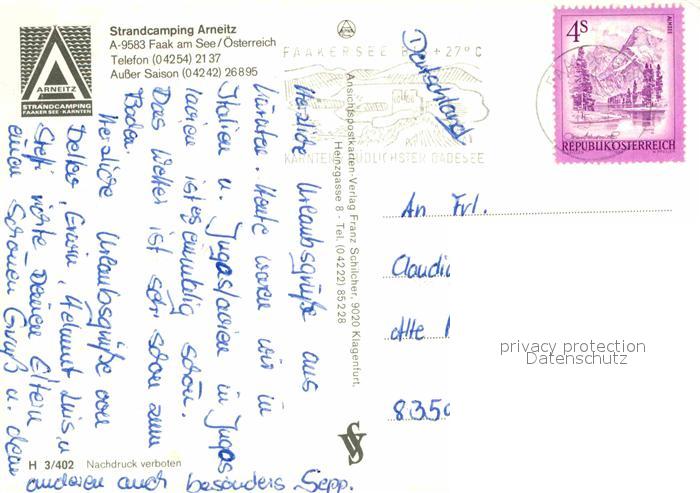 Strandcamping Arneitz
A-9583 Faak am See/Österreich
Telefon (04254) 2137
Außer Saison (04242) 26895
ARNEITZ
STRANDCAMPING
FAAKERSEE-KÄRNTEN
FAAKERSEE +27°C
KÄRNTENS SÜDLICHSTER BADESEE
4S
ALMSEE
REPUBLIK ÖSTERREICH
Deutschland
Herzliche Urlaubsgrüße aus
Kärnten. Heute waren wir in
Italien u. Jugoslavien in Jugos
lavien ist es einmalig schön.
Das Wetter ist sehr schön zum
Baden.
Herzliche Urlaubsgrüße von
Helmut, Luis, u
Steffi Deinen Eltern
einen schönen Gruß u. den
anderen auch besonders Sepp.
Ansichtspostkarten-Verlag Franz Schilcher, 9020 Klagenfurt,
Heinzgasse 8 - Tel. (04222) 85228
An Frl.
Claudi
Alte
835
privacy protection
Datenschutz
H 3/402 Nachdruck verboten